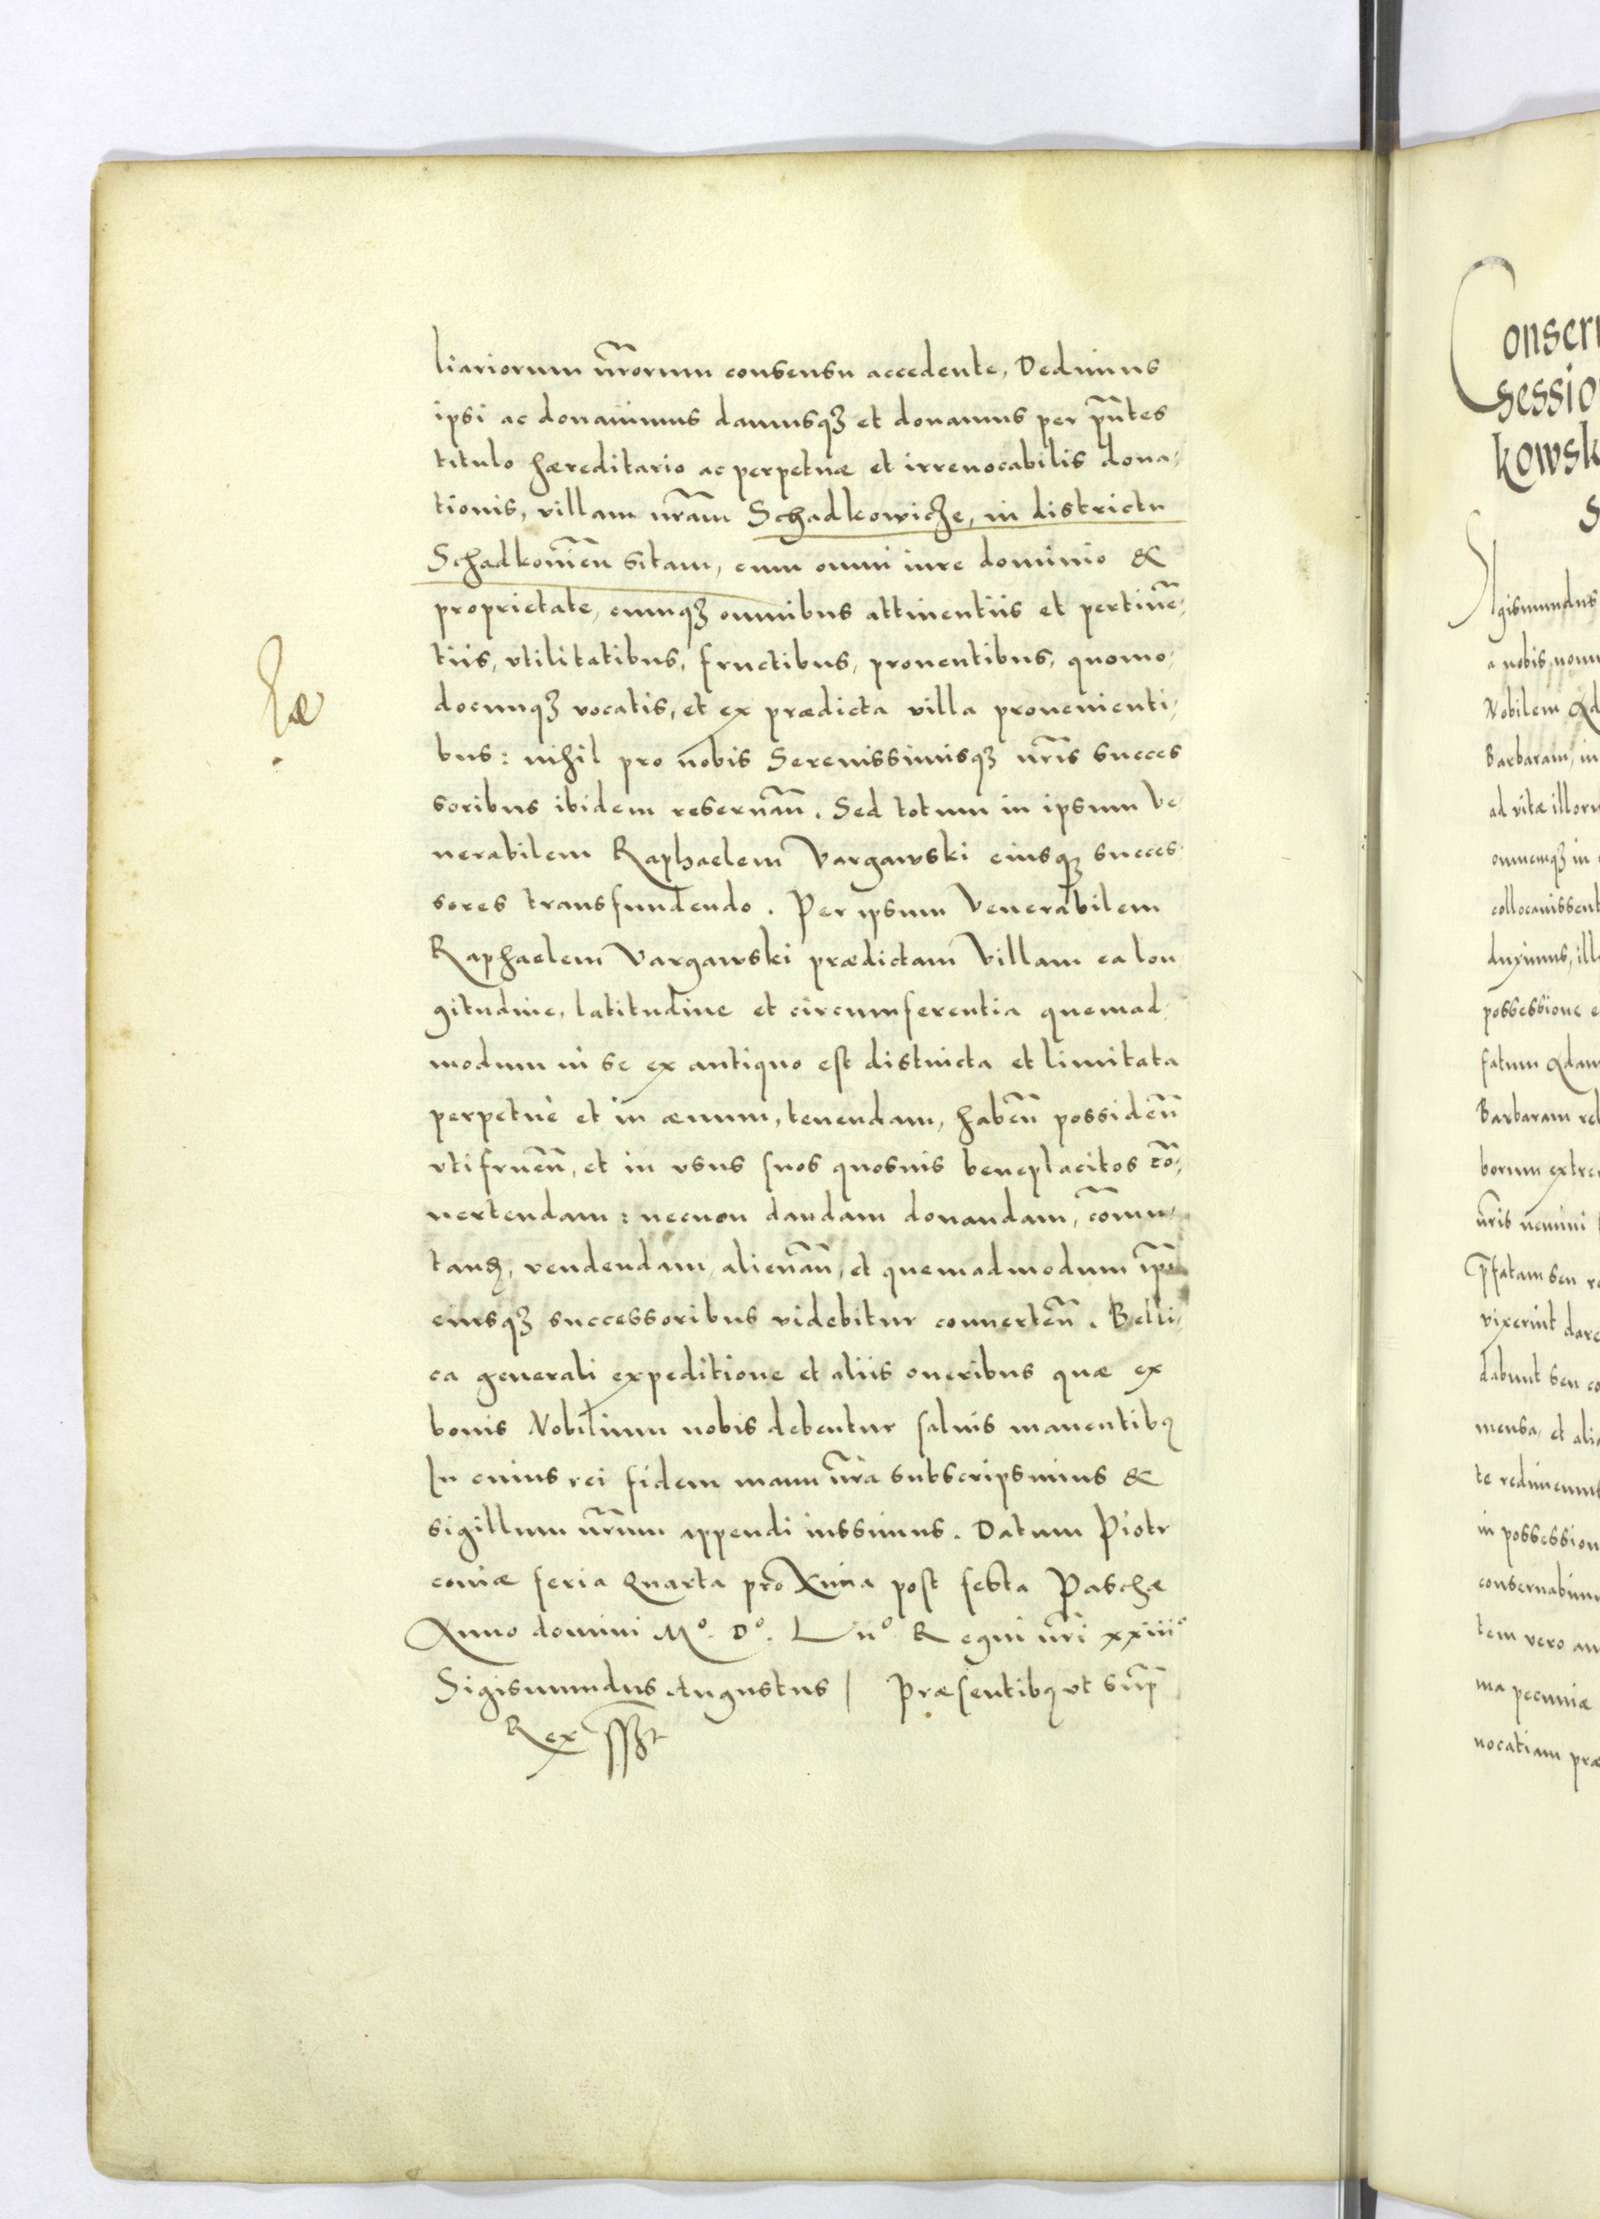 liariorum nr̃orum consensu accedente, Dedimus
ipsi ac donauimus damusqꝫ et donamus per pñtes
titulo hæreditario ac perpetuæ et irreuocabilis dona,
tionis, villam nr̃am Schadkowicze, in districtu
Schadkouien̄ sitam, cum omni iure dominio &
proprietate, cumqꝫ omnibus attinentiis et pertinē,
tiis, vtilitatibus, fructibus, prouentibus, quomo,
documqꝫ vocatis, et ex prædicta villa prouenienti,
bus: nihil pro nobis Serenissimisqꝫ nr̃is succes
soribus ibidem reseruan̄. Sed totum in ipsum Ve,
nerabilem Raphaelem Vargawski eiusqꝫ succes
sores transfundendo. Per ipsum Venerabilem
Raphaelem Vargawski prædictam Villam ea lon
gitudine, latitudine et circumferentia quemad,
modum in se ex antiquo est distincta et limitata
perpetuè et in æuum, tenendam, haben̄ possiden̄
vtifruen̄, et in vsus suos quosuis beneplacitos cō,
uertendam: necnon dandam donandam, cōmu,
tanꝫ, vendendam, alienan̄, et quemadmodum ip̃i
eiusqꝫ successoribus videbitur conuerten̄. Belli,
ca generali expeditione et aliis oneribus quæ ex
bonis Nobilium nobis debentur saluis manentibꝫ
In cuius rei fidem manu nr̃a subscripsimus &
sigillum nr̃um appendi iussimus. Datum Piotr
couiæ feria Quarta proxima post festa Paschæ
Anno domini Mº. Dº. Liiº Regni nr̃i xxiiiº
Sigismundus Augustus | Præsentibꝫ vt sup̄
Rex sszt
onser
sessio
kowsk
S
gismundus
a nobis, nonn
Nobilem Ad
Barbaram, in
ad vitæ illoru
omnemqꝫ in
collocauissent
duximus, ill
possessione e
fatum Adam
Barbaram rel
borum extre
nr̃is nemini
p̄fatam seu re
vixerint dare
dabunt seu co
mensa, et ali
te redimemus
in possession
conseruabim
tem vero an
ma pecuniæ
uocatiam præ